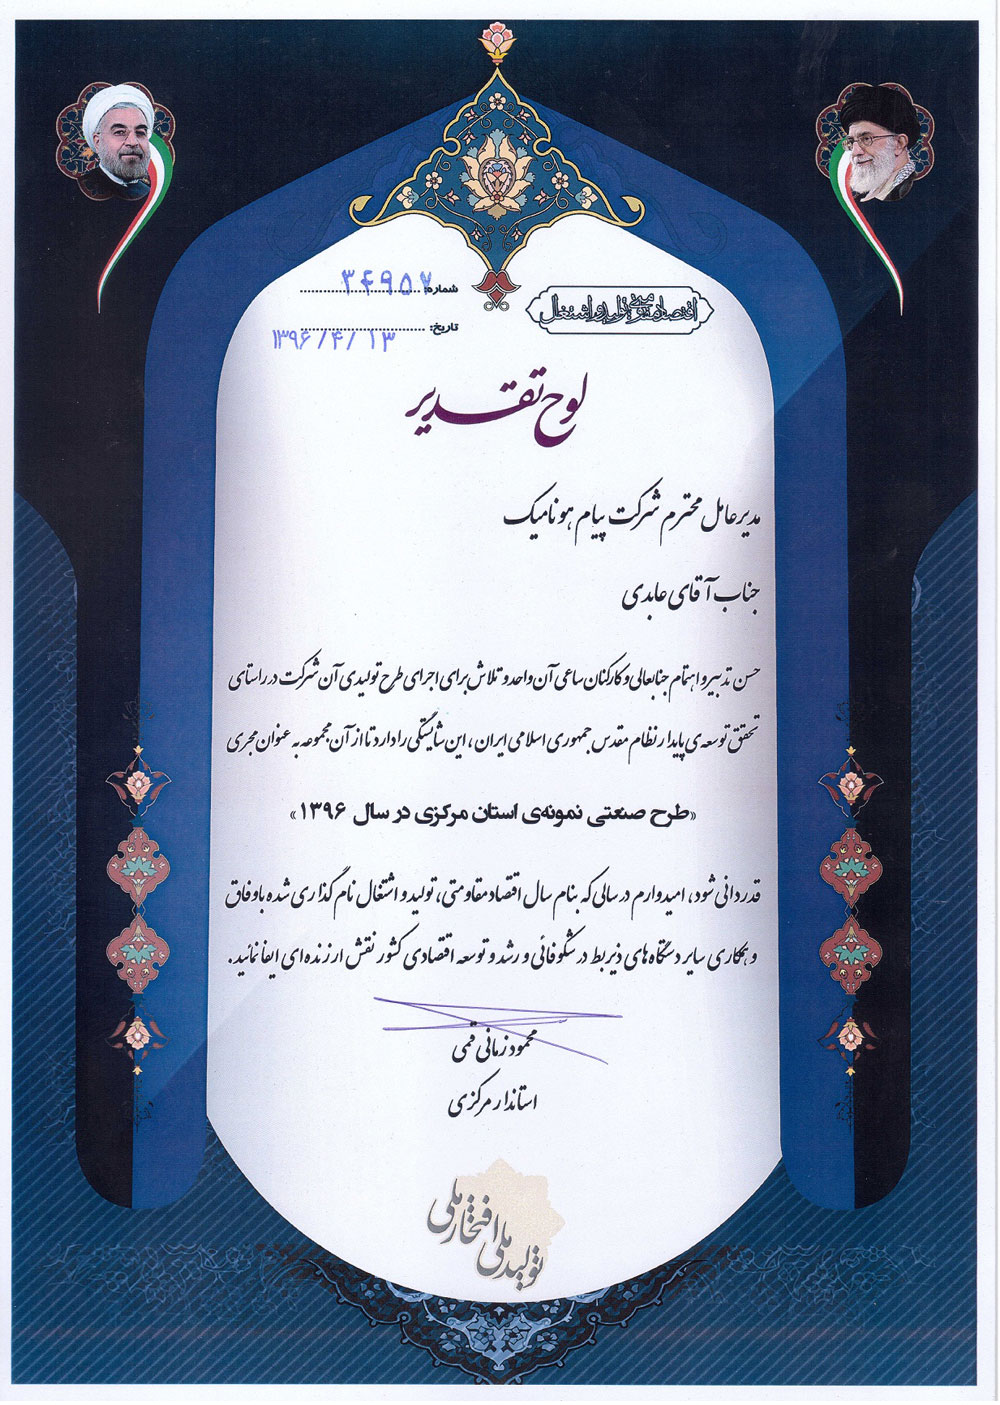 شماره: ۳۴۹۵۷
اقتصاد مقاومتی تولید و اشتغال
تاریخ: ۱۳۹۶/۴/۱۳
لوح تقدیر
مدیرعامل محترم شرکت پیام هونامیک
جناب آقای عابدی
حسن تدبیر و اهتمام جنابعالی و کارکنان ساعی آن واحد و تلاش برای اجرای طرح تولیدی آن شرکت در راستای
تحقق توسعه‌ی پایدار نظام مقدس جمهوری اسلامی ایران، این شایستگی را دارد تا از آن مجموعه به عنوان مجری
«طرح صنعتی نمونه‌ی استان مرکزی در سال ۱۳۹۶»
قدردانی شود، امیدوارم در سالی که بنام سال اقتصاد مقاومتی، تولید و اشتغال نام گذاری شده با وفاق
و همکاری سایر دستگاه های ذیربط در شکوفائی و رشد و توسعه اقتصادی کشور نقش ارزنده ای ایفا نمائید.
محمود زمانی قمی
استاندار مرکزی
تولید ملی افتخار ملی